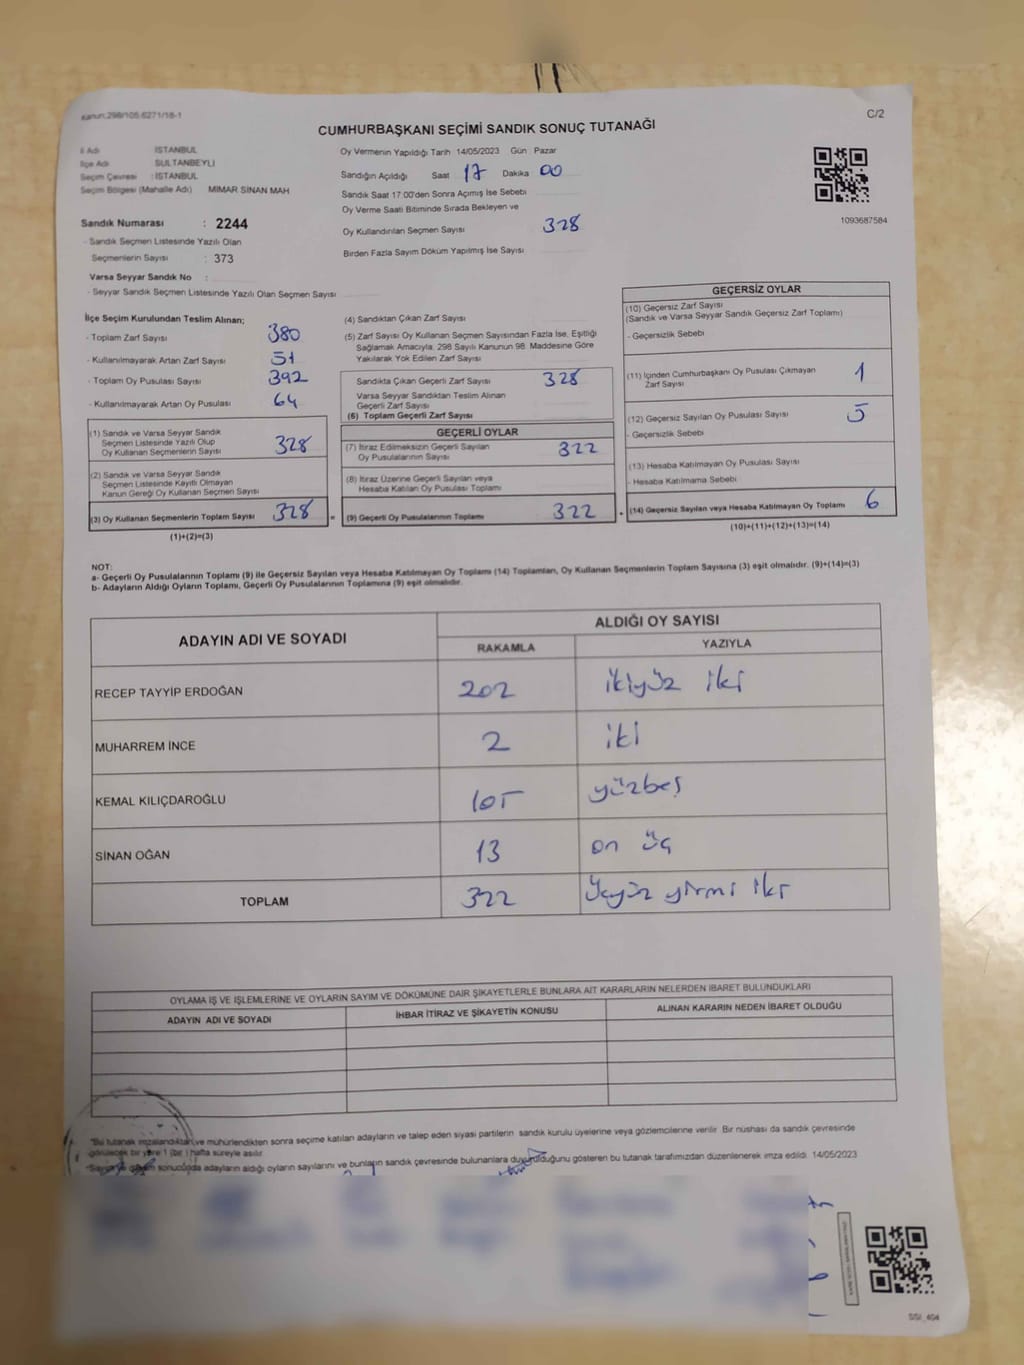 Kanun.298/105.6271/18-1
C/2
CUMHURBAŞKANI SEÇİMİ SANDIK SONUÇ TUTANAĞI
İl Adı : İSTANBUL
İlçe Adı : SULTANBEYLİ
Seçim Çevresi : İSTANBUL
Seçim Bölgesi (Mahalle Adı) MİMAR SİNAN MAH
Sandık Numarası : 2244
- Sandık Seçmen Listesinde Yazılı Olan
Seçmenlerin Sayısı : 373
Varsa Seyyar Sandık No :
- Seyyar Sandık Seçmen Listesinde Yazılı Olan Seçmen Sayısı
Oy Vermenin Yapıldığı Tarih 14/05/2023 Gün Pazar
Sandığın Açıldığı Saat 17 Dakika 00
Sandık Saat 17:00'den Sonra Açımış İse Sebebi
Oy Verme Saati Bitiminde Sırada Bekleyen ve
Oy Kullandırılan Seçmen Sayısı 328
Birden Fazla Sayım Döküm Yapılmış İse Sayısı
1093687584
İlçe Seçim Kurulundan Teslim Alınan;
- Toplam Zarf Sayısı 380
- Kullanılmayarak Artan Zarf Sayısı 51
- Toplam Oy Pusulası Sayısı 392
- Kullanılmayarak Artan Oy Pusulası 64
(1) Sandık ve Varsa Seyyar Sandık
Seçmen Listesinde Yazılı Olup
Oy Kullanan Seçmenlerin Sayısı 328
(2) Sandık ve Varsa Seyyar Sandık
Seçmen Listesinde Kayıtlı Olmayan
Kanun Gereği Oy Kullanan Seçmen Sayısı
(3) Oy Kullanan Seçmenlerin Toplam Sayısı 328 =
(1)+(2)=(3)
(4) Sandıktan Çıkan Zarf Sayısı
(5) Zarf Sayısı Oy Kullanan Seçmen Sayısından Fazla İse, Eşitliği
Sağlamak Amacıyla, 298 Sayılı Kanunun 98. Maddesine Göre
Yakılarak Yok Edilen Zarf Sayısı
Sandıkta Çıkan Geçerli Zarf Sayısı 328
Varsa Seyyar Sandıktan Teslim Alınan
Geçerli Zarf Sayısı
(6) Toplam Geçerli Zarf Sayısı
GEÇERLİ OYLAR
(7) İtiraz Edilmeksizin Geçerli Sayılan
Oy Pusulalarının Sayısı 322
(8) İtiraz Üzerine Geçerli Sayılan veya
Hesaba Katılan Oy Pusulası Toplamı
(9) Geçerli Oy Pusulalarının Toplamı 322 +
GEÇERSİZ OYLAR
(10) Geçersiz Zarf Sayısı
(Sandık ve Varsa Seyyar Sandık Geçersiz Zarf Toplamı)
- Geçersizlik Sebebi
(11) İçinden Cumhurbaşkanı Oy Pusulası Çıkmayan
Zarf Sayısı 1
(12) Geçersiz Sayılan Oy Pusulası Sayısı 5
- Geçersizlik Sebebi
(13) Hesaba Katılmayan Oy Pusulası Sayısı
- Hesaba Katılmama Sebebi
(14) Geçersiz Sayılan veya Hesaba Katılmayan Oy Toplamı 6
(10)+(11)+(12)+(13)=(14)
NOT:
a- Geçerli Oy Pusulalarının Toplamı (9) ile Geçersiz Sayılan veya Hesaba Katılmayan Oy Toplamı (14) Toplamları, Oy Kullanan Seçmenlerin Toplam Sayısına (3) eşit olmalıdır. (9)+(14)=(3)
b- Adayların Aldığı Oyların Toplamı, Geçerli Oy Pusulalarının Toplamına (9) eşit olmalıdır.
ADAYIN ADI VE SOYADI
ALDIĞI OY SAYISI
RAKAMLA YAZIYLA
RECEP TAYYİP ERDOĞAN 202 ikiyüz iki
MUHARREM İNCE 2 iki
KEMAL KILIÇDAROĞLU 105 yüzbeş
SİNAN OĞAN 13 on üç
TOPLAM 322 üçyüz yirmi iki
OYLAMA İŞ VE İŞLEMLERİNE VE OYLARIN SAYIM VE DÖKÜMÜNE DAİR ŞİKAYETLERLE BUNLARA AİT KARARLARIN NELERDEN İBARET BULUNDUKLARI
ADAYIN ADI VE SOYADI İHBAR İTİRAZ VE ŞİKAYETİN KONUSU ALINAN KARARIN NEDEN İBARET OLDUĞU
*Bu tutanak imzalandıktan ve mühürlendikten sonra seçime katılan adayların ve talep eden siyasi partilerin sandık kurulu üyelerine veya gözlemcilerine verilir. Bir nüshası da sandık çevresinde
görülecek bir yere 1 (bir) hafta süreyle asılır.
*Sayım ve döküm sonucunda adayların aldığı oyların sayılarını ve bunların sandık çevresinde bulunanlara duyurulduğunu gösteren bu tutanak tarafımızdan düzenlenerek imza edildi. 14/05/2023
SSI_404